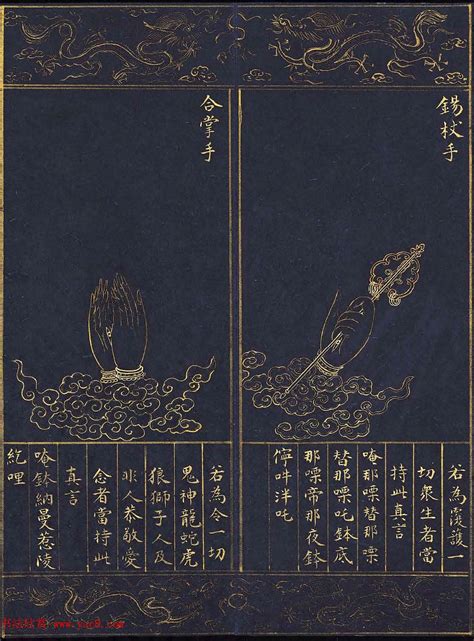 錫杖手
若為覆護一
切衆生者當
持此真言
唵那嘌替那嘌
替那嘌吒鉢底
那嘌帝那夜鉢
儜吽泮吒
合掌手
若為令一切
鬼神龍蛇虎
狼獅子人及
非人恭敬愛
念者當持此
真言
唵鉢納曼惹陵
紇哩